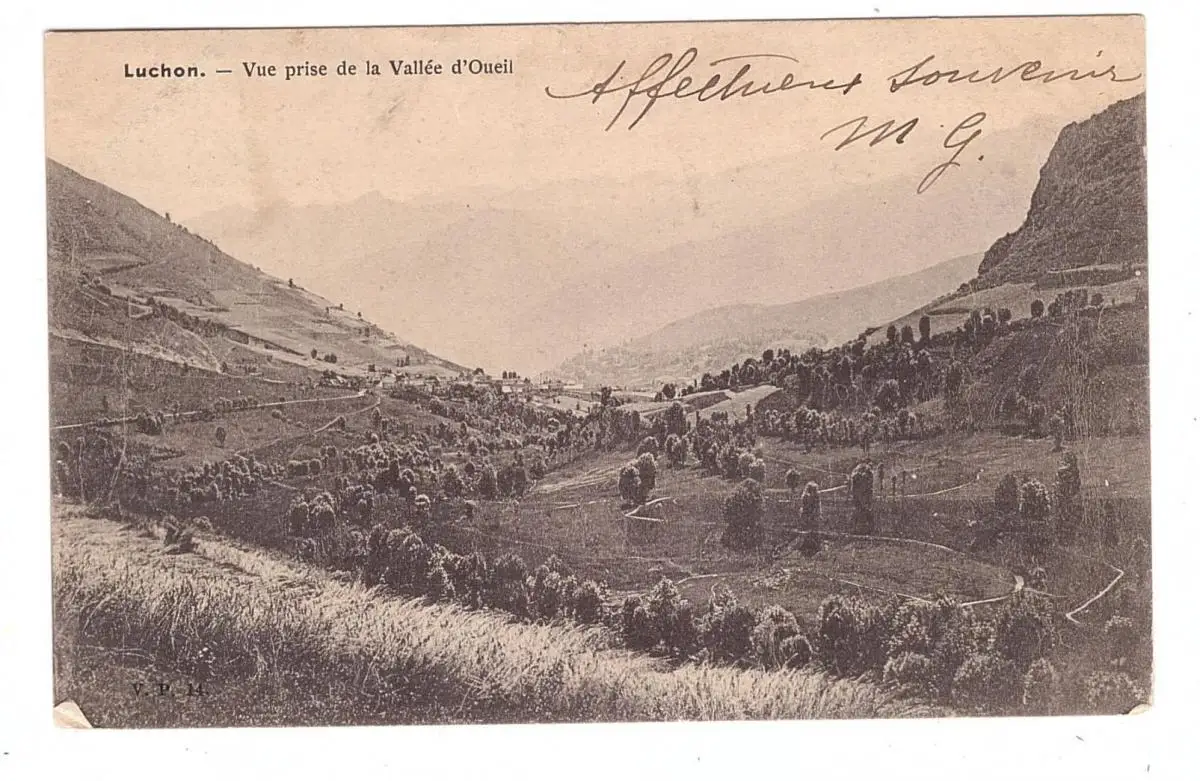 Luchon. — Vue prise de la Vallée d'Oueil
Affectueux souvenir
M G.
V. P. 14